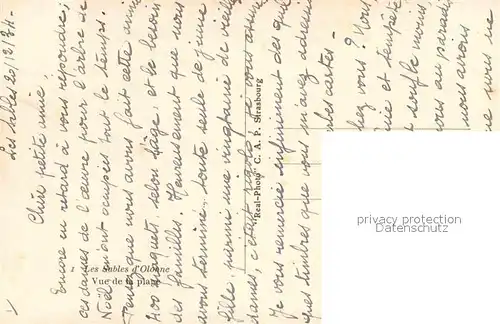 Les Sables 20/12/34.
Chère petite amie,
Encore en retard à vous répondre;
ces dames de l'œuvre pour l'arbre de
Noël m'ont occupée tout le temps.
Pensez que nous avons fait cette année
400 paquets, selon l'âge, et le besoin
des familles. Heureusement que nous
avons terminé, toute seule de jeune
fille, parmi une vingtaine de vieilles
dames, c'était rigolo je vous assure
Je vous remercie infiniment des quel
ques timbres que vous m'avez adressé
cartes -
chez vous? Vous
et tempête
souffle nous
vous au paradis
nous aurons
nous ne
1 Les Sables d'Olonne
Vue de la plage
"Real-Photo" C. A. P. Strasbourg
privacy protection
Datenschutz